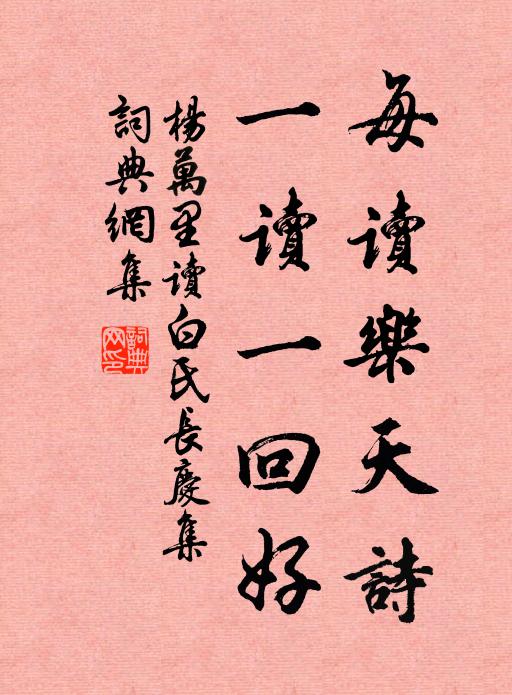 每讀樂天詩
一讀一回好
楊萬里讀白氏長慶集
詞典網集
詞典网印